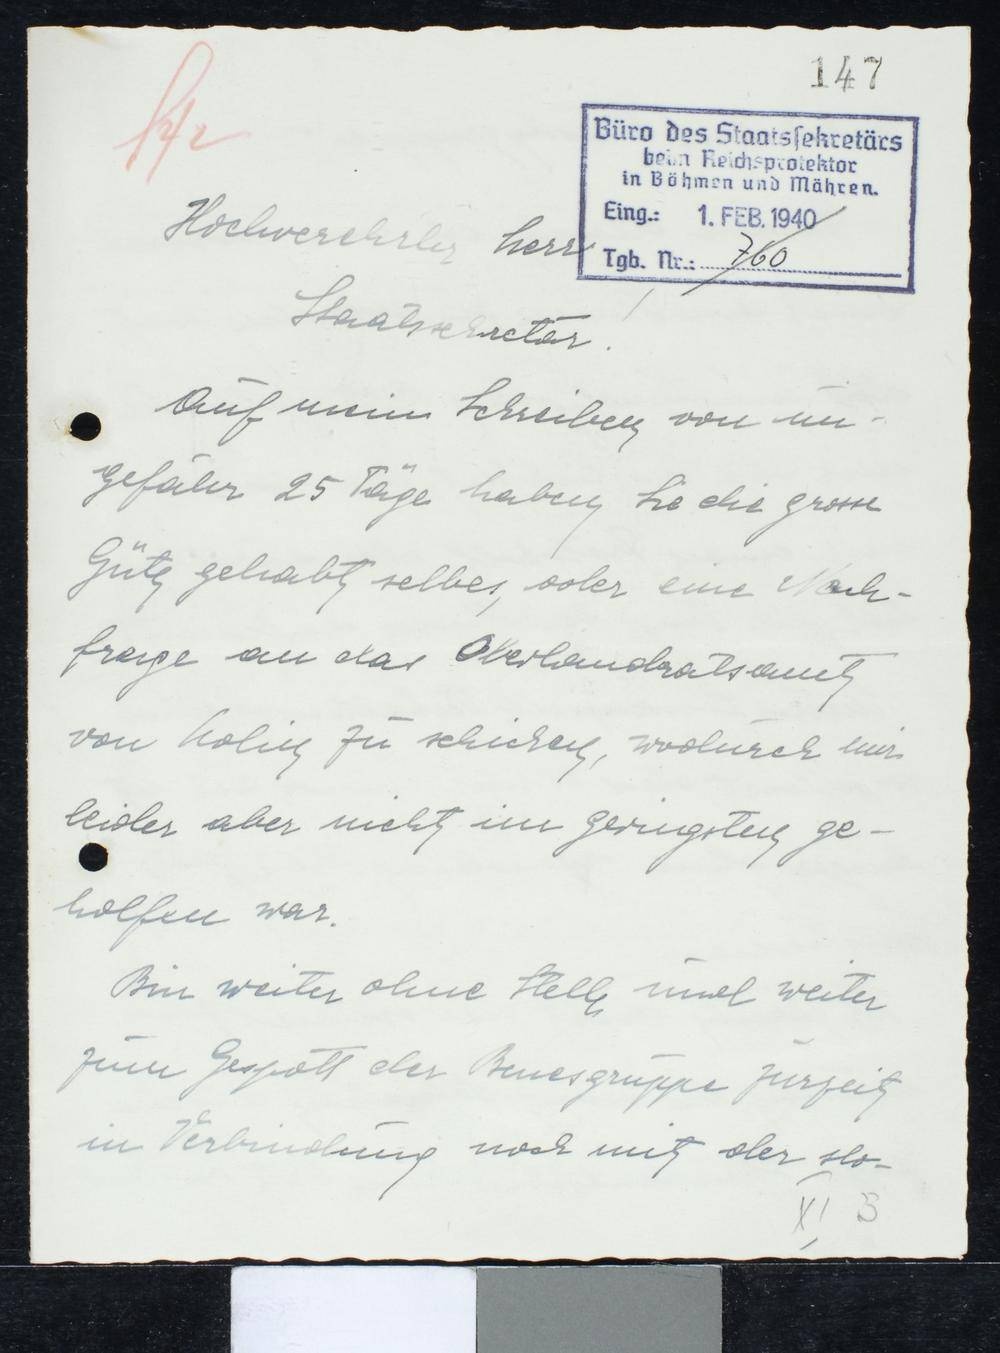 147
Büro des Staatssekretärs
beim Reichsprotektor
in Böhmen und Mähren.
Eing.: 1. FEB. 1940
Tgb. Nr.: 760
Hochverehrter Herr
Staatssekretär!
Auf mein Schreiben von un-
gefähr 25 Täge haben Sie die grosse
Güte gehabt selbes, oder eine Nach-
frage an das Oberlandratsamt
von Kolin zu schicken, wodurch mir
leider aber nicht im geringsten ge-
holfen war.
Bin weiter ohne Stelle und weiter
zum Gespött der Benesgruppe zurzeit
in Verbindung noch mit der slo-
XI B